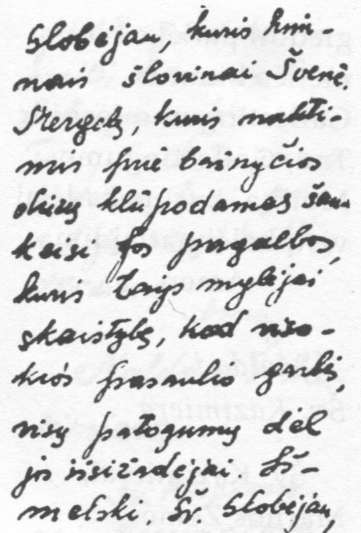 Globėjau, kuris himi-
nais šlovinai Švenč.
Mergelę, kuris nakti-
mis prie bažnyčios
durų klūpodamas šau-
keisi jos pagalbos,
kuris taip mylėjai
skaistybę, kad viso-
kios pasaulio garbės,
visų patogumų dėl
jos išsižadėjai. Iš-
melski, Šv. Globėjau,